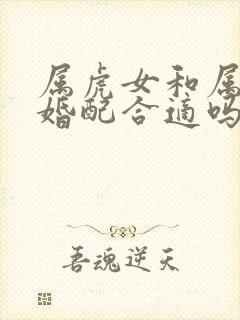 属虎女和属
婚配合适吗
吾魂逆天